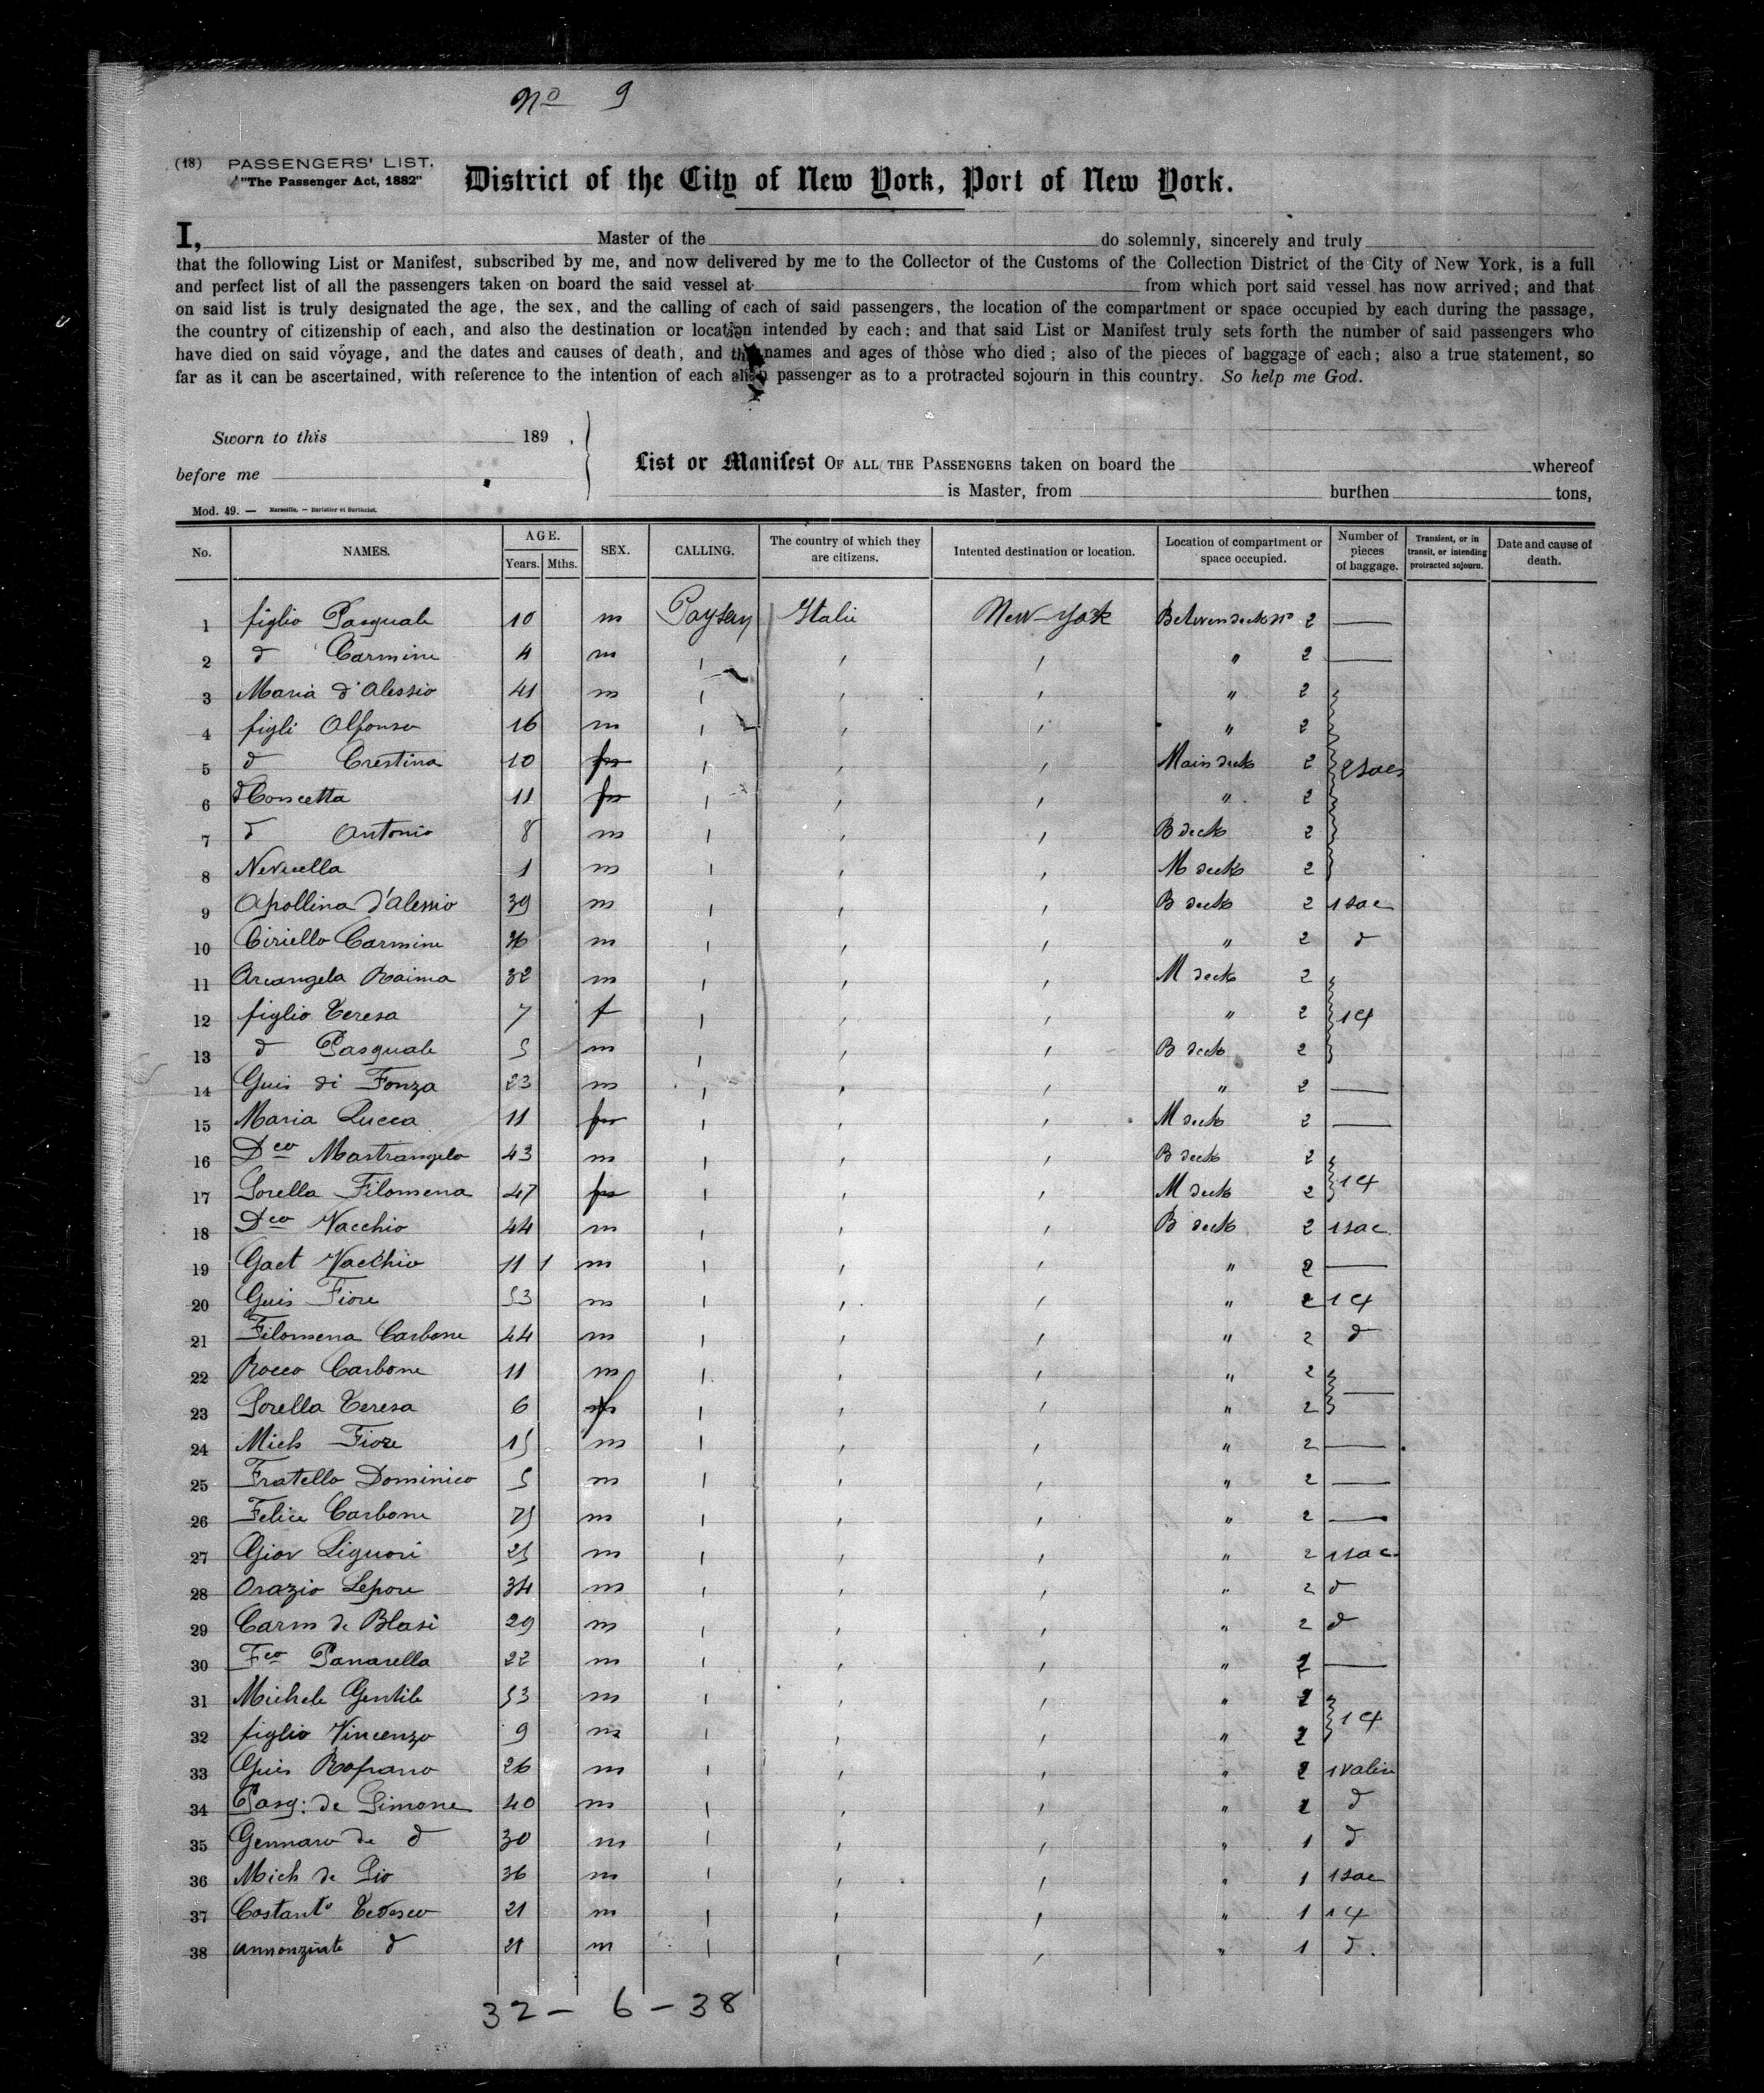 No 9
(18) PASSENGERS' LIST.
"The Passenger Act, 1882"
District of the City of New York, Port of New York.
I, Master of the do solemnly, sincerely and truly
that the following List or Manifest, subscribed by me, and now delivered by me to the Collector of the Customs of the Collection District of the City of New York, is a full
and perfect list of all the passengers taken on board the said vessel at from which port said vessel has now arrived; and that
on said list is truly designated the age, the sex, and the calling of each of said passengers, the location of the compartment or space occupied by each during the passage,
the country of citizenship of each, and also the destination or location intended by each; and that said List or Manifest truly sets forth the number of said passengers who
have died on said voyage, and the dates and causes of death, and the names and ages of those who died; also of the pieces of baggage of each; also a true statement, so
far as it can be ascertained, with reference to the intention of each alien passenger as to a protracted sojourn in this country. So help me God.
Sworn to this 189 ,
before me
List or Manifest OF ALL THE PASSENGERS taken on board the whereof
is Master, from burthen tons,
Mod. 49. — Marseille. — Barlatier et Barthelet.
No. NAMES. AGE. Years. Mths. SEX. CALLING. The country of which they are citizens. Intented destination or location. Location of compartment or space occupied. Number of pieces of baggage. Transient, or in transit, or intending protracted sojourn. Date and cause of death.
1 figlio Pasquale 10 m Paysan Italie New-York Between deck no 2 —
2 d Carmine 4 m " 2 —
3 Maria d'Alessio 41 m " 2
4 figli Alfonso 16 m " 2
5 d Crestina 10 f Main deck 2 2 sacs
6 d Concetta 11 f " 2
7 d Antonio 8 m B deck 2
8 Nevicella 1 m M deck 2
9 Apollina d'Alessio 39 m B deck 2 1 sac
10 Ciriello Carmine 36 m " 2 d
11 Arcangela Raima 32 m M deck 2
12 figlio Teresa 7 f " 2 1 cf
13 d Pasquale 5 m B deck 2
14 Guis di Fonza 23 m " 2 —
15 Maria Lucca 11 f M deck 2 —
16 Dco Mastrangelo 43 m B deck 2
17 Sorella Filomena 47 f M deck 2 1 cf
18 Dco Vacchio 44 m B deck 2 1 sac
19 Gaet Vacchio 11 1 m " 2 —
20 Guis Fiore 53 m " 2 1 cf
21 Filomena Carbone 44 m " 2 d
22 Rocco Carbone 11 m " 2
23 Sorella Teresa 6 f " 2 —
24 Mich Fiore 15 m " 2 —
25 Fratello Dominico 5 m " 2 —
26 Felice Carbone 75 m " 2 —
27 Giov Liguori 25 m " 2 1 sac
28 Orazio Lepore 34 m " 2 d
29 Carm de Blasi 29 m " 2 d
30 Fco Panarella 22 m " 2 —
31 Michele Gentile 53 m " 2
32 figlio Vincenzo 9 m " 2 1 cf
33 Guis Rofrano 26 m " 2 1 valise
34 Pasq: de Simone 40 m " 2 d
35 Gennaro de d 30 m " 1 d
36 Mich de Sio 36 m " 1 1 sac
37 Costanto Tedesco 21 m " 1 1 cf
38 Annonziate d 21 m " 1 d.
32 — 6 — 38